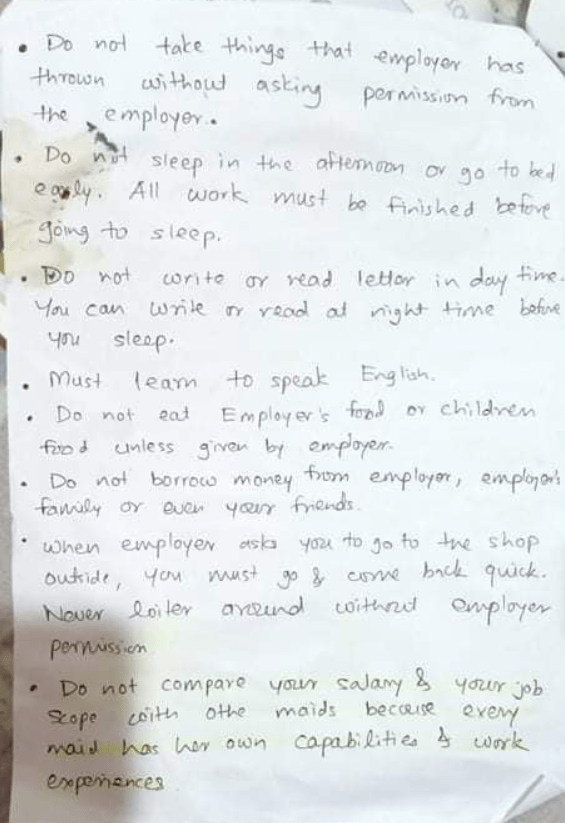 • Do not take things that employer has
thrown without asking permission from
the employer.
• Do not sleep in the afternoon or go to bed
early. All work must be finished before
going to sleep.
• Do not write or read letter in day time.
You can write or read at night time before
you sleep.
• Must learn to speak English.
• Do not eat Employer's food or children
food unless given by employer.
• Do not borrow money from employer, employer's
family or even your friends.
• when employer asks you to go to the shop
outside, you must go & come back quick.
Never loiter around without employer
permission
• Do not compare your salary & your job
scope with othe maids because every
maid has her own capabilities & work
experiences.